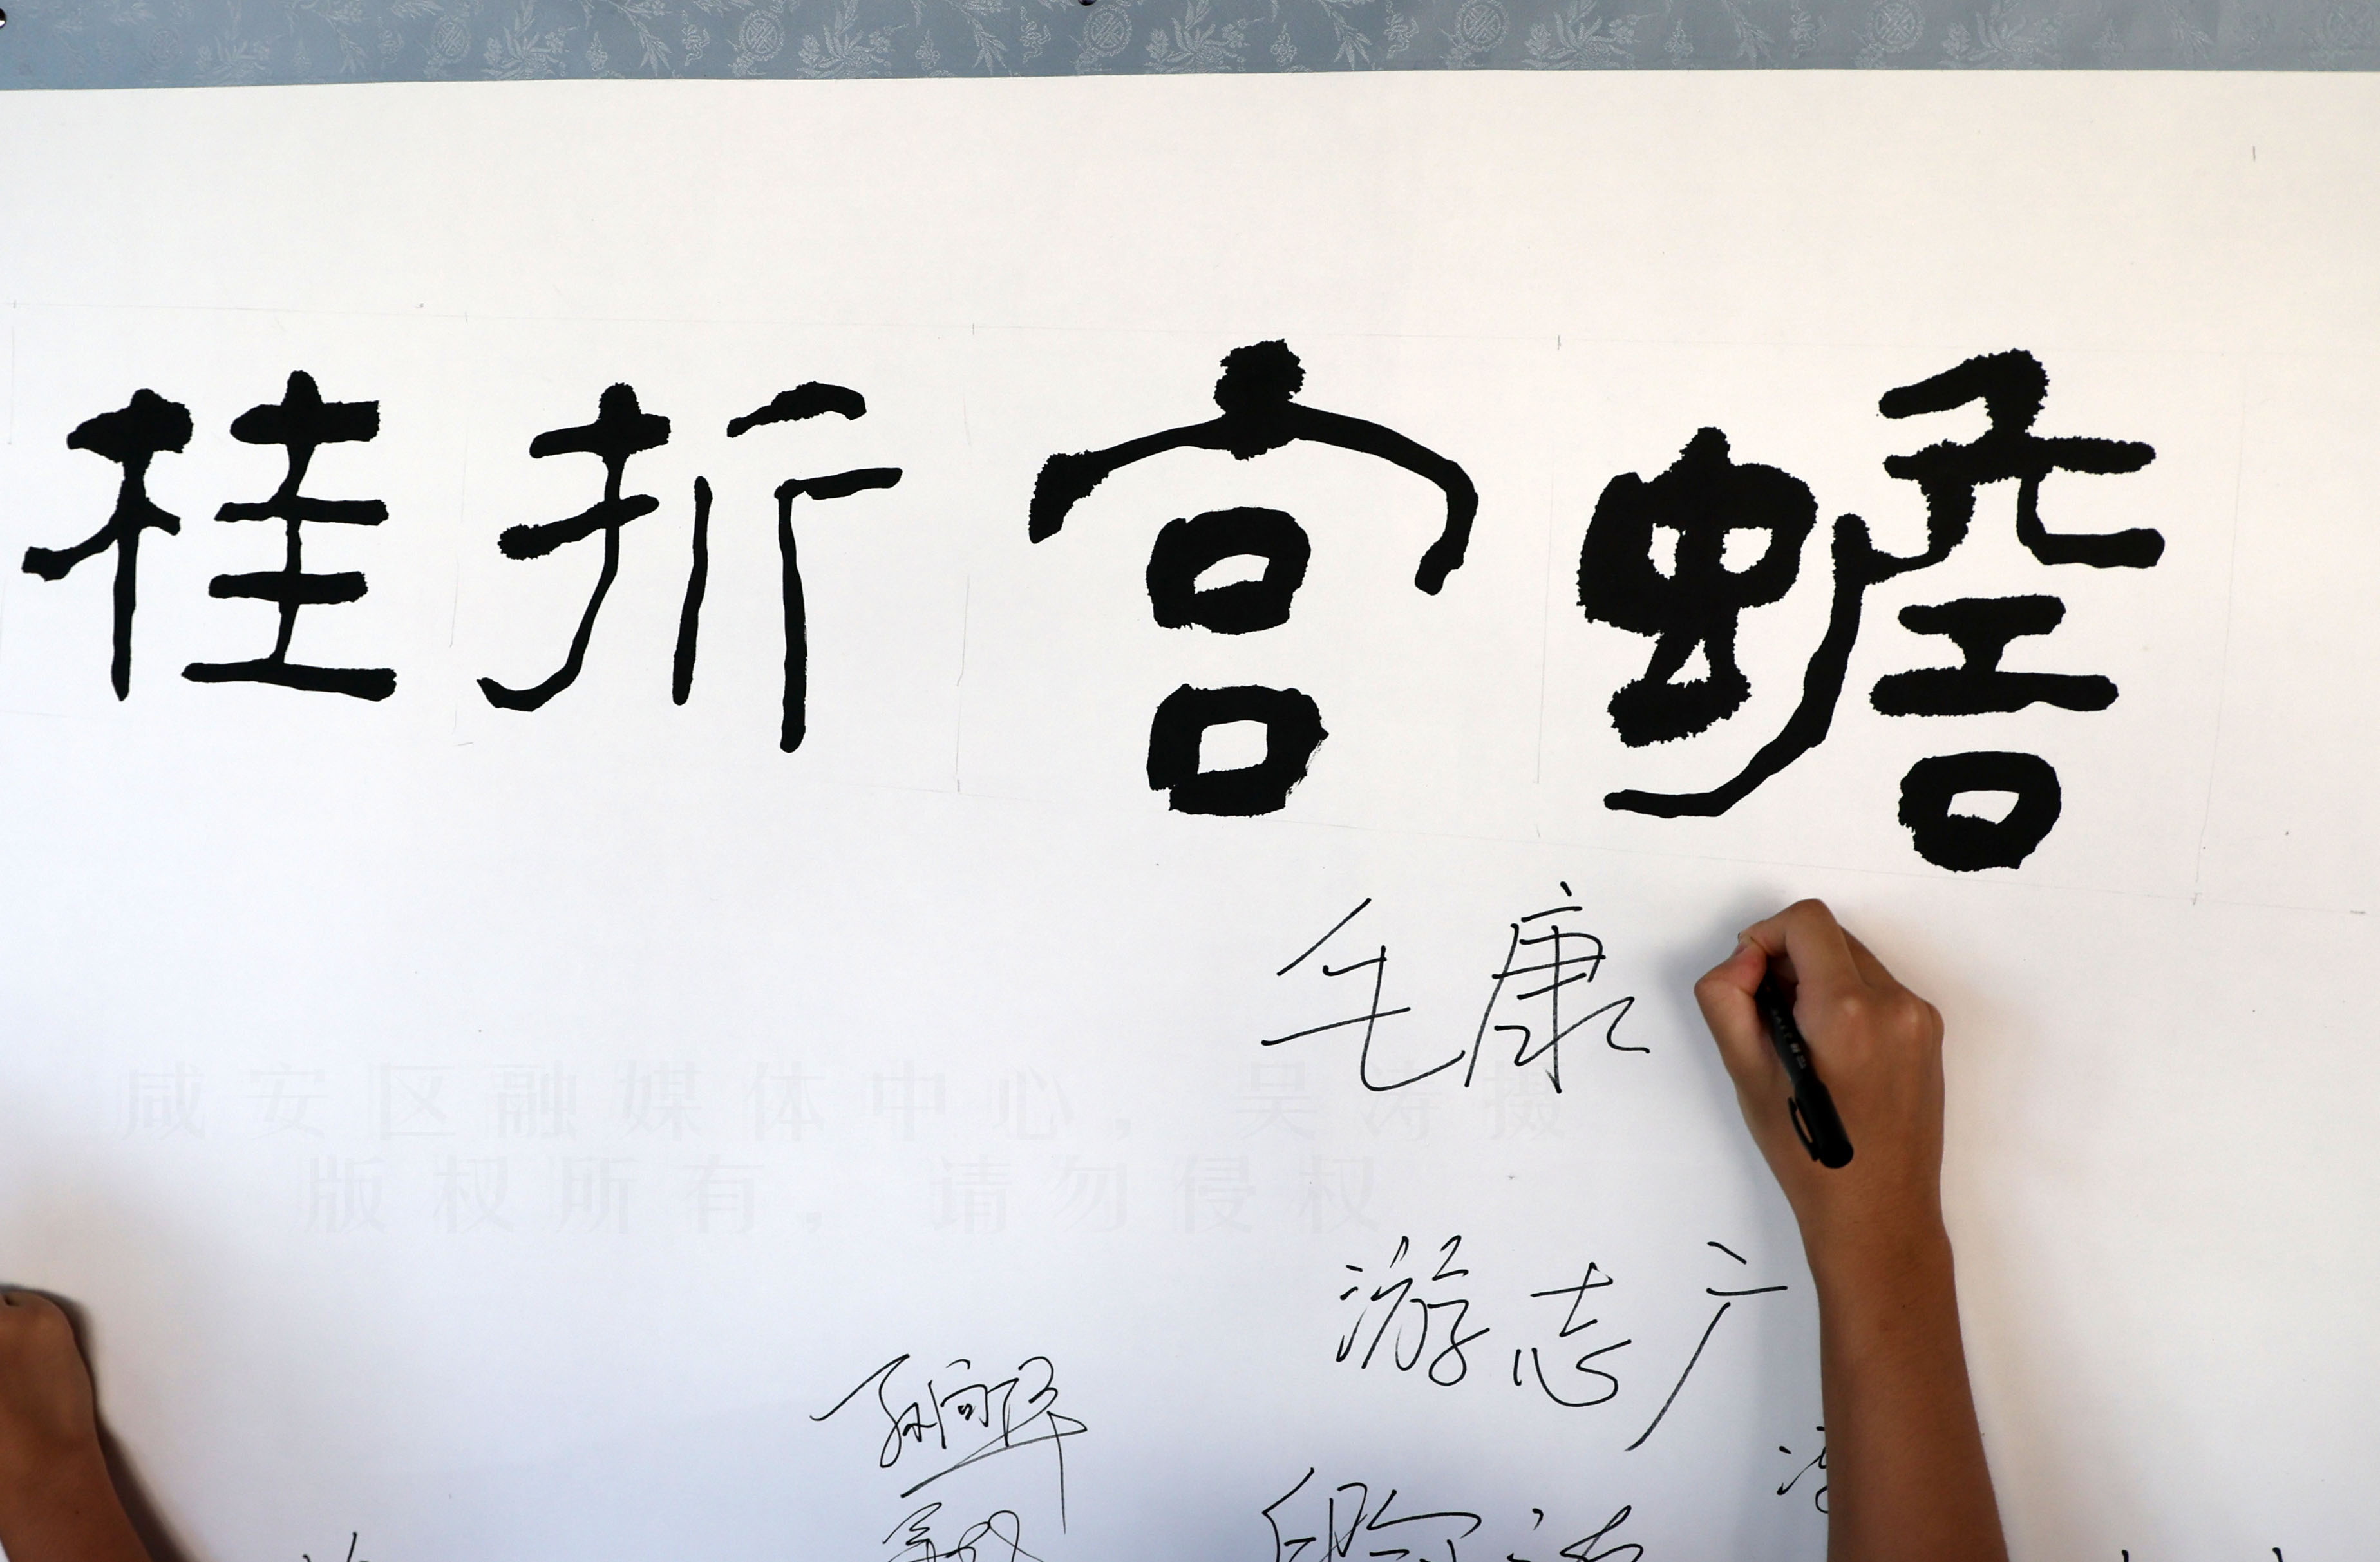 蟾宫折桂
毛康
咸安区融媒体中心，吴涛摄
版权所有，请勿侵权
游志广